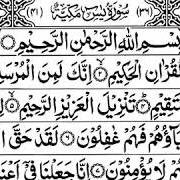 (٣٦) سُوْرَةُ يٰسٓ مَكِّيَّةٌ (٤١)
بِسْمِ اللهِ الرَّحْمٰنِ الرَّحِيْمِ
الْقُرْاٰنِ الْحَكِيْمِ ۝ اِنَّكَ لَمِنَ الْمُرْسَ
تَقِيْمٍ ۝ تَنْزِيْلَ الْعَزِيْزِ الرَّحِيْمِ ۝
بَآؤُهُمْ فَهُمْ غٰفِلُوْنَ ۝ لَقَدْ حَقَّ ا
هُمْ لَا يُؤْمِنُوْنَ ۝ اِنَّا جَعَلْنَا فِيْٓ اَعْنَا